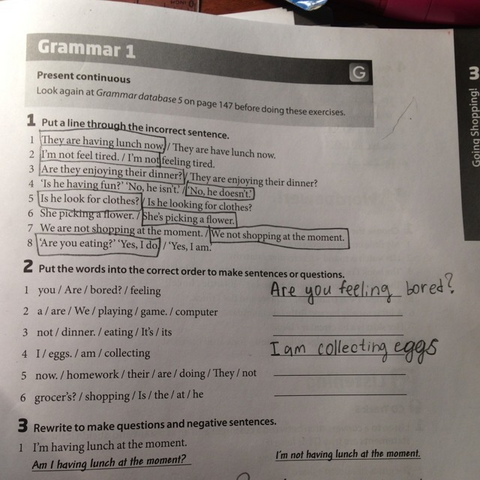 Grammar 1
G
Present continuous
Look again at Grammar database 5 on page 147 before doing these exercises.
3
Going Shopping!
1 Put a line through the incorrect sentence.
1 They are having lunch now. / They are have lunch now.
2 I'm not feel tired. / I'm not feeling tired.
3 Are they enjoying their dinner? / They are enjoying their dinner?
4 'Is he having fun?' 'No, he isn't.' / 'No, he doesn't.'
5 Is he look for clothes? / Is he looking for clothes?
6 She picking a flower. / She's picking a flower.
7 We are not shopping at the moment. / We not shopping at the moment.
8 'Are you eating?' 'Yes, I do.' / 'Yes, I am.'
2 Put the words into the correct order to make sentences or questions.
1 you / Are / bored? / feeling Are you feeling bored?
2 a / are / We / playing / game. / computer
3 not / dinner. / eating / It's / its
4 I / eggs. / am / collecting I am collecting eggs
5 now. / homework / their / are / doing / They / not
6 grocer's? / shopping / Is / the / at / he
3 Rewrite to make questions and negative sentences.
1 I'm having lunch at the moment.
Am I having lunch at the moment? I'm not having lunch at the moment.